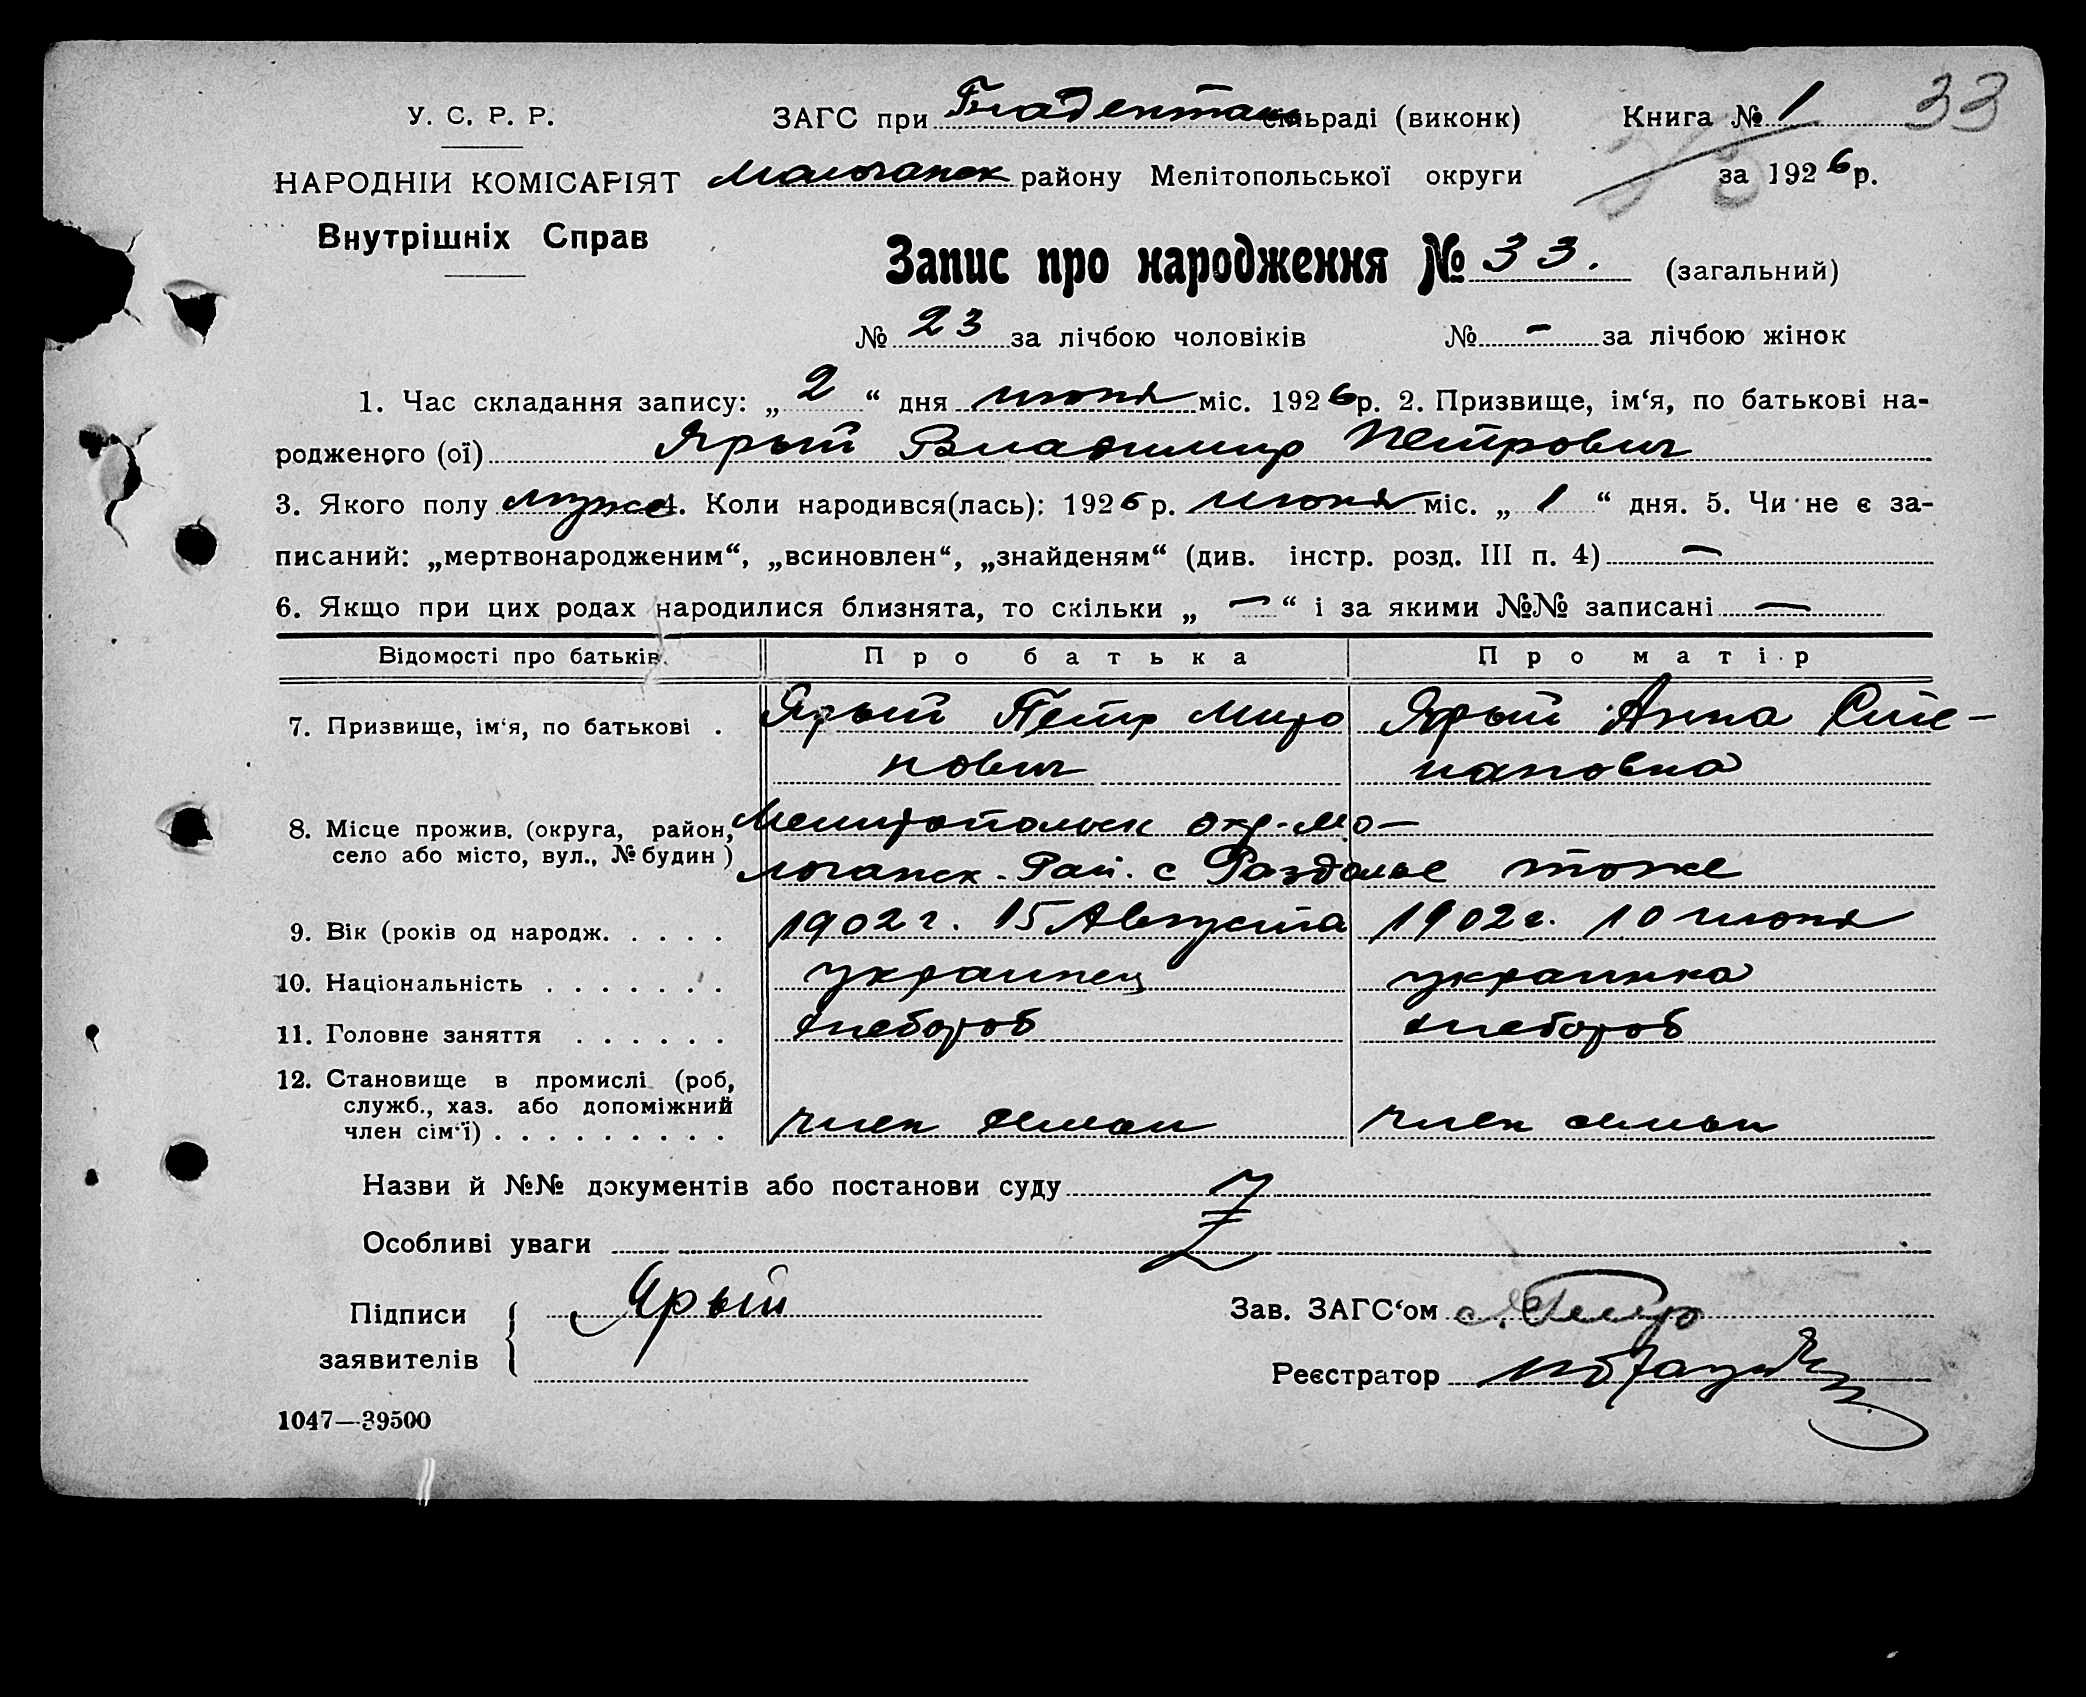 У. С. Р. Р.
ЗАГС при Гнаденталь сільраді (виконк)
Книга № 1 33
НАРОДНІЙ КОМІСАРІЯТ
Молочанск району Мелітопольської округи
за 1926 р.
Внутрішніх Справ
Запис про народження № 33. (загальний)
№ 23 за лічбою чоловіків № — за лічбою жінок
1. Час складання запису: „ 2 “ дня июня міс. 1926 р. 2. Призвище, ім‘я, по батькові на-
родженого (ої) Ярый Владимир Петрович
3. Якого полу муж 4. Коли народився(лась): 1926 р. июня міс. „ 1 “ дня. 5. Чи не є за-
писаний: „мертвонародженим“, „всиновлен“, „знайденям“ (див. інстр. розд. III п. 4) —
6. Якщо при цих родах народилися близнята, то скільки „ — “ і за якими №№ записані —
Відомості про батьків. Про батька Про матір
7. Призвище, ім‘я, по батькові . Ярый Петр Миро Ярый Анна Сте-
нович пановна
8. Місце прожив. (округа, район, Мелитопольск окр. Мо-
село або місто, вул., № будин ) лочанск. Рай. с Раздолье тоже
9. Вік (років од народж. . . . . 1902 г. 15 Августа 1902 г. 10 июня
10. Національність . . . . . . . украинец украинка
11. Головне заняття . . . . . . хлебороб хлебороб
12. Становище в промислі (роб,
служб., хаз. або допоміжний
член сім‘ї) . . . . . . . . . член семьи член семьи
Назви й №№ документів або постанови суду
Особливі уваги
Підписи
заявителів
Ярый
Зав. ЗАГС‘ом
Реєстратор
1047—39500